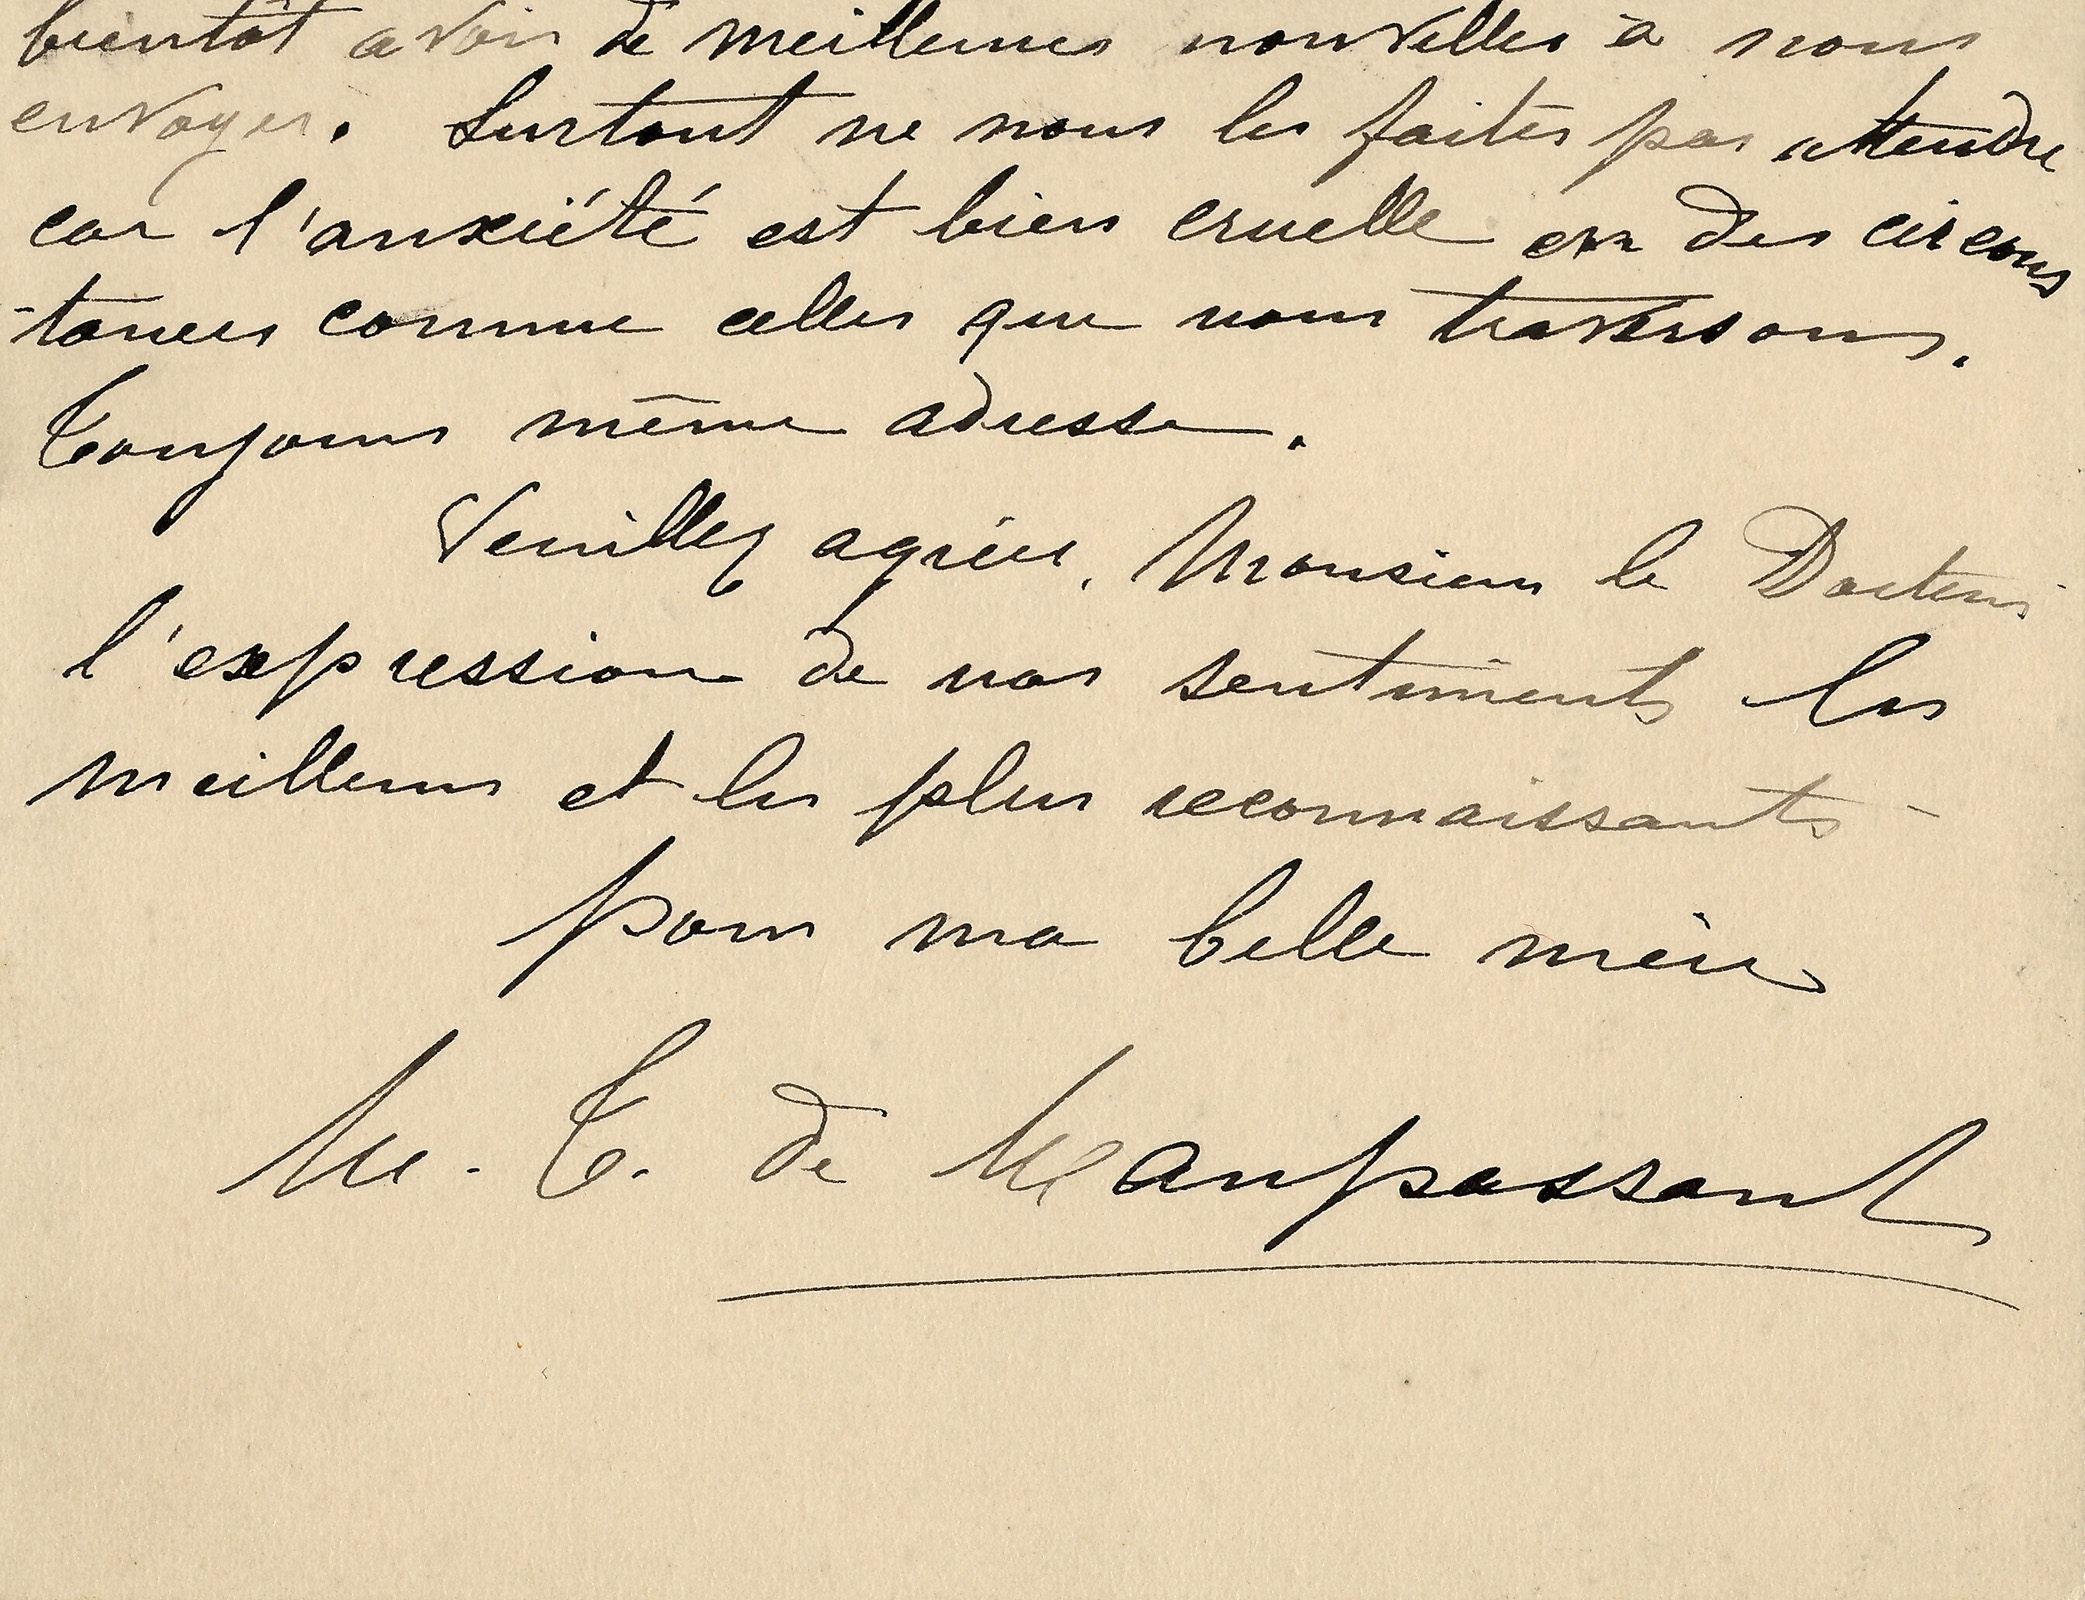 bientôt avoir de meilleures nouvelles à nous
envoyer. Surtout ne nous les faites pas attendre
car l'anxiété est bien cruelle en des circons
-tances comme celles que nous traversons.
Toujours même adresse.
Veuillez agréer, Monsieur le Docteur
l'expression de nos sentiments les
meilleurs et les plus reconnaissants -
pour ma belle mère
M. T. de Maupassant